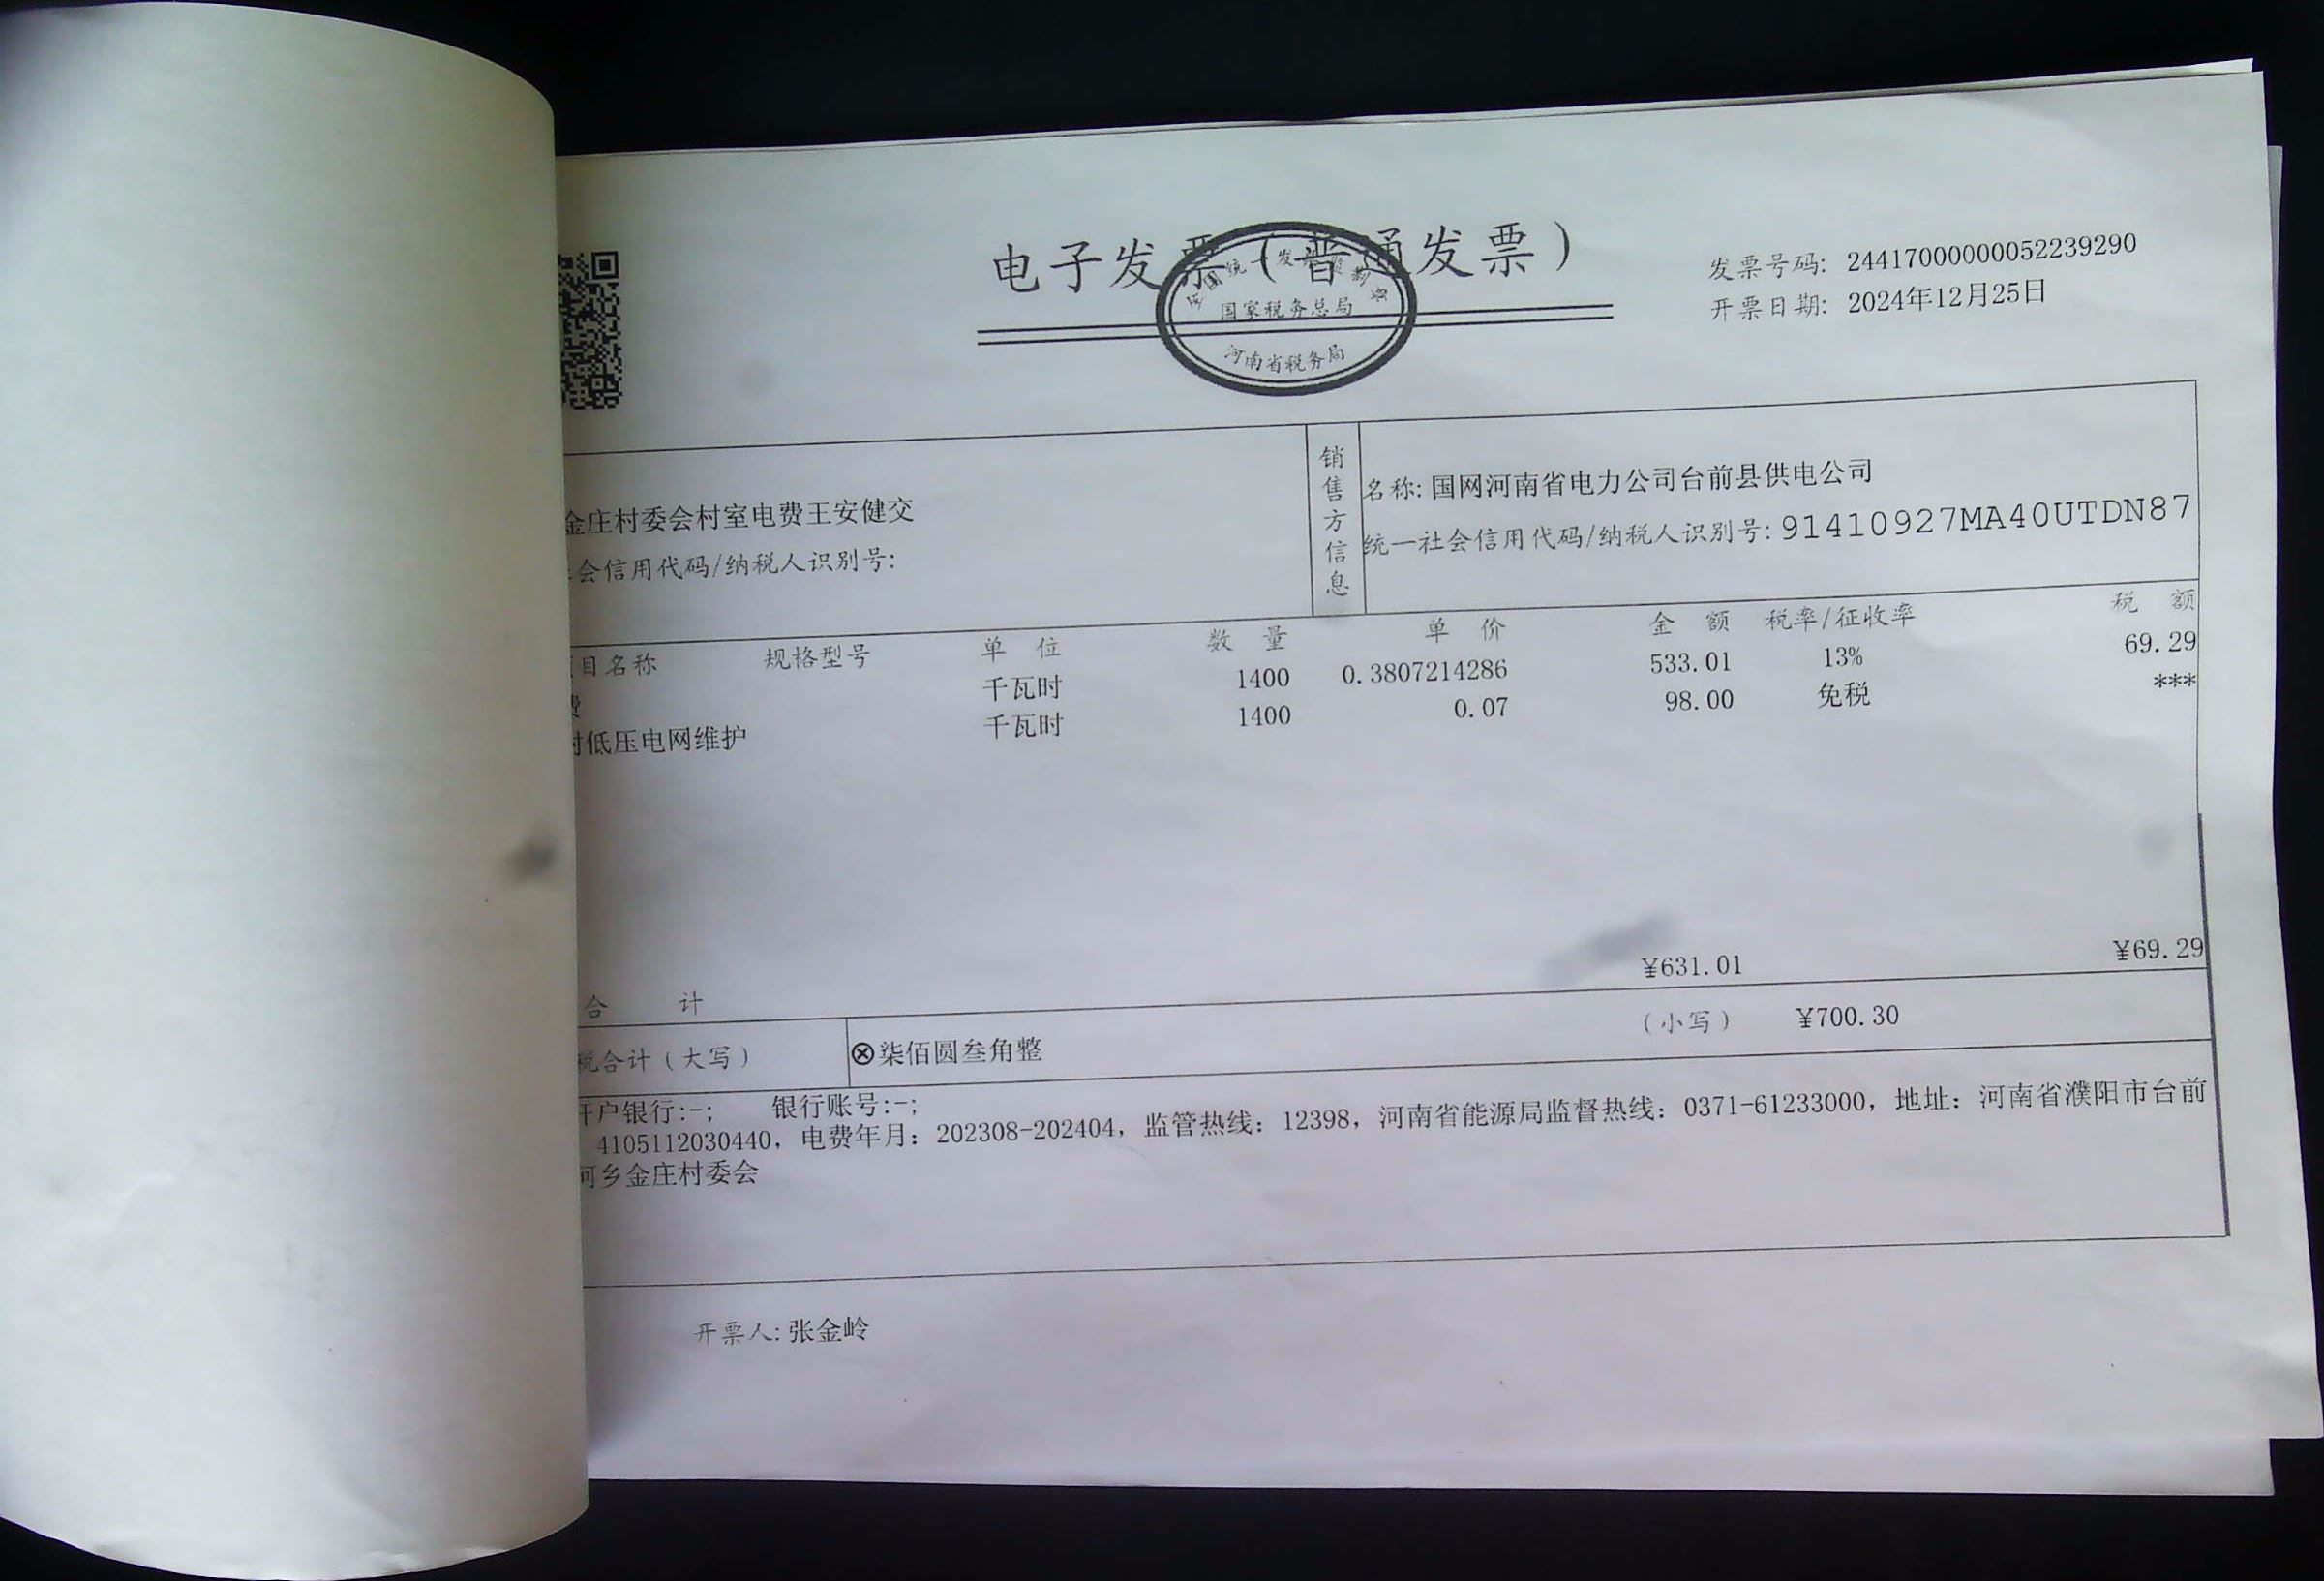 电子发票（普通发票）
国家税务总局
河南省税务局
发票号码: 24417000000052239290
开票日期: 2024年12月25日
金庄村委会村室电费王安健交
会信用代码/纳税人识别号:
销售方信息
名称: 国网河南省电力公司台前县供电公司
统一社会信用代码/纳税人识别号: 91410927MA40UTDN87
目名称 规格型号 单 位 数 量 单 价 金 额 税率/征收率 税 额
费 千瓦时 1400 0.3807214286 533.01 13% 69.29
村低压电网维护 千瓦时 1400 0.07 98.00 免税 ***
合 计 ¥631.01 ¥69.29
税合计（大写） ⊗柒佰圆叁角整 （小写） ¥700.30
开户银行:-; 银行账号:-;
4105112030440, 电费年月: 202308-202404, 监管热线: 12398, 河南省能源局监督热线: 0371-61233000, 地址: 河南省濮阳市台前
河乡金庄村委会
开票人: 张金岭